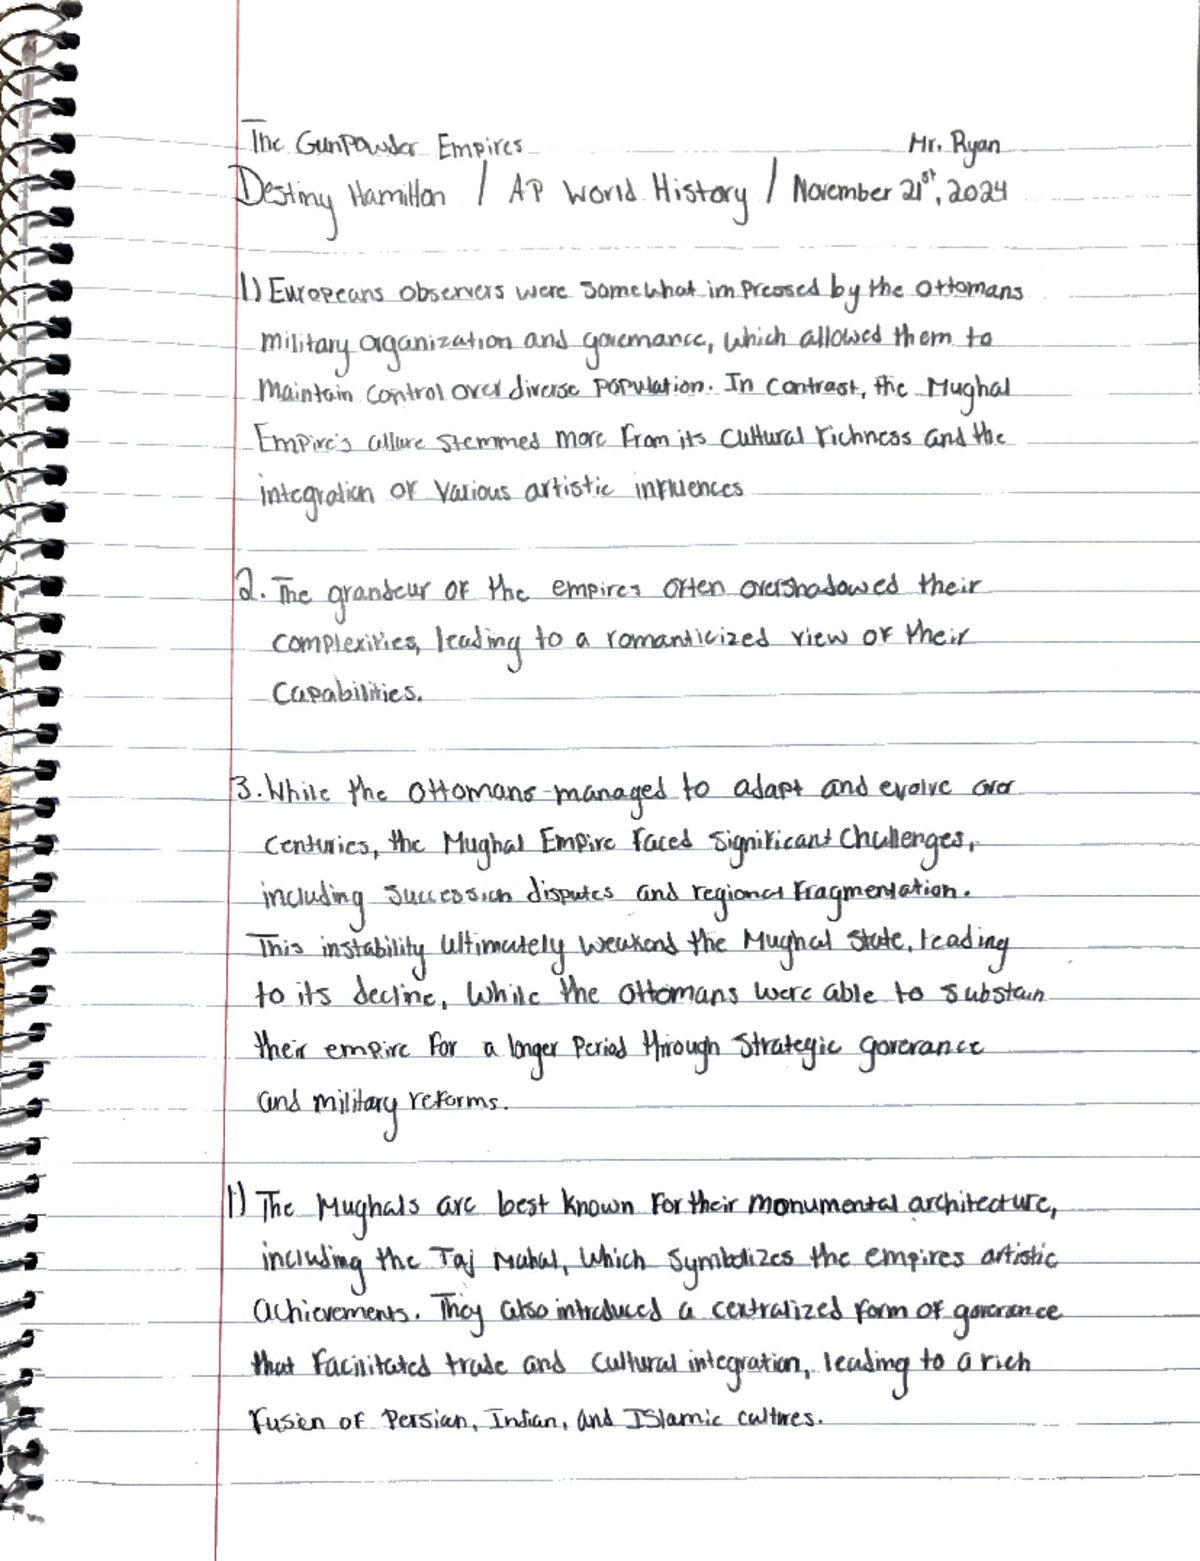 The Gunpowder Empires
Mr. Ryan
Destiny Hamilton / AP World History / November 21st, 2024
1) Europeans observers were somewhat impressed by the Ottomans
military organization and governance, which allowed them to
maintain control over diverse population. In contrast, the Mughal
Empire's allure stemmed more from its cultural richness and the
integration of various artistic influences
2. The grandeur of the empires often overshadowed their
complexities, leading to a romanticized view of their
capabilities.
3. While the Ottomans managed to adapt and evolve over
centuries, the Mughal Empire faced significant challenges,
including succession disputes and regional fragmentation.
This instability ultimately weakend the Mughal State, leading
to its decline, while the Ottomans were able to substain
their empire for a longer period through strategic goverance
and military reforms.
1) The Mughals are best known for their monumental architecture,
including the Taj Mahal, which symbolizes the empires artistic
achievements. They also introduced a centralized form of goverance
that facilitated trade and cultural integration, leading to a rich
fusion of Persian, Indian, and Islamic cultures.